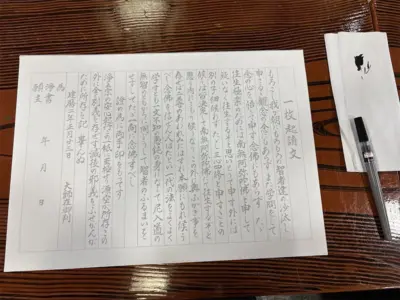 一枚起請文
もろこし我が朝にもろもろの智者達の沙汰し
申さるる観念の念にもあらずまた学問をして
念の心を悟りて申す念仏にもあらずただ
往生極楽のためには南無阿弥陀仏と申して
疑いなく往生するぞと思い取りて申す外には
別の子細候わずただし三心四修と申すことの
候うは皆決定して南無阿弥陀仏にて往生するぞと
思ううちにこもり候うなりこの外に奥ふかき事を
存ぜば二尊のあわれみにはずれ本願にもれ候う
べし念仏を信ぜん人はたとい一代の法をよくよく
学すとも一文不知の愚鈍の身になして尼入道の
無智のともがらに同じうして智者のふるまいを
せずしてただ一向に念仏すべし
証の為に両手印をもってす
浄土宗の安心起行この一紙に至極せり源空が所存この
外に全く別義を存ぜず滅後の邪義をふせがんが
ために所存を記し畢んぬ
建暦二年正月二十三日 大師在御判
為
浄書
願主 年 月 日